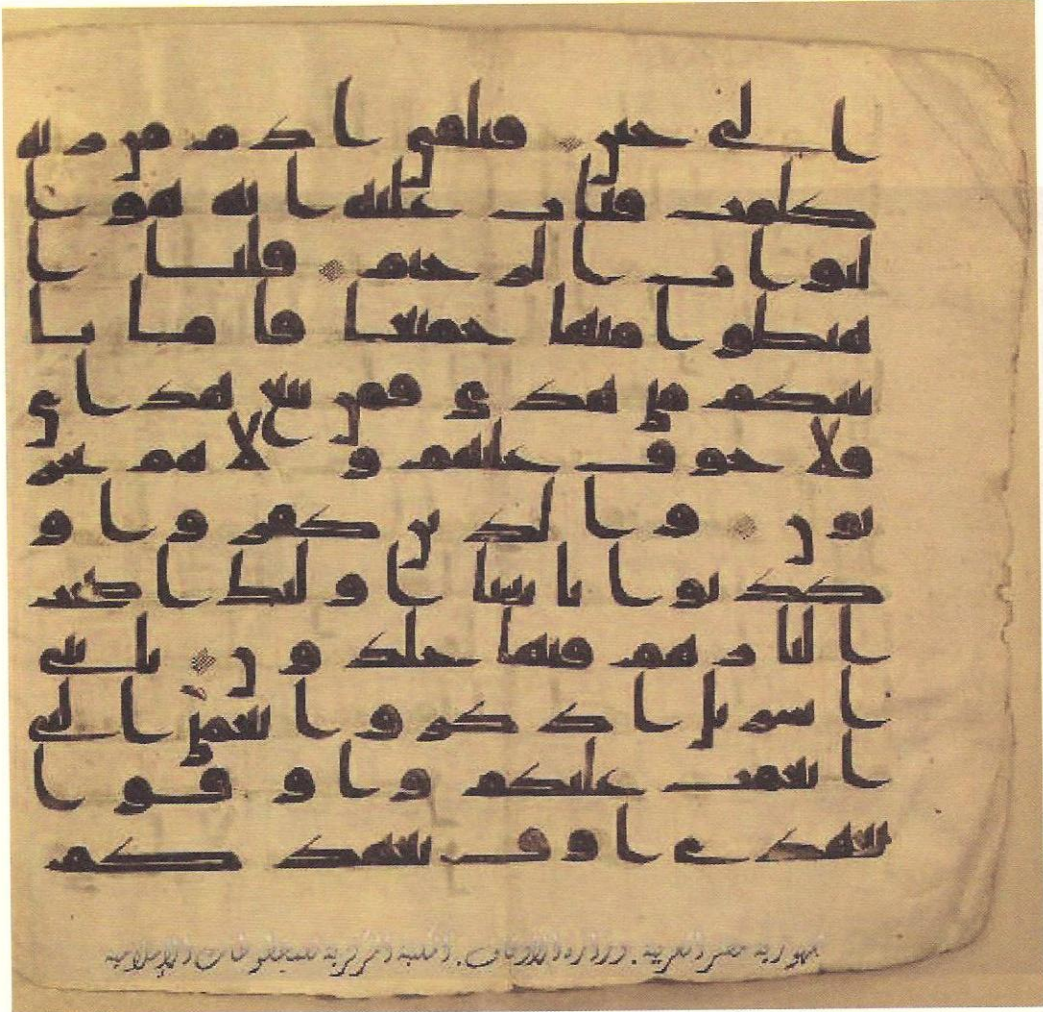 الى حين فتلقى ادم من ربه
كلمت فتاب عليه انه هو ا
لتواب الرحيم قلنا ا
هبطوا منها جميعا فاما يا
تينكم مني هدى فمن تبع هداي
فلا خوف عليهم ولا هم يحز
نون والذين كفروا و
كذبوا بايتنا اولئك اصحب
النار هم فيها خلدون يبني
اسريل اذكروا نعمتي التي
انعمت عليكم واوفوا
بعهدي اوف بعهدكم
جمهورية مصر العربية . وزارة الأوقاف . المكتبة المركزية للمخطوطات الإسلامية